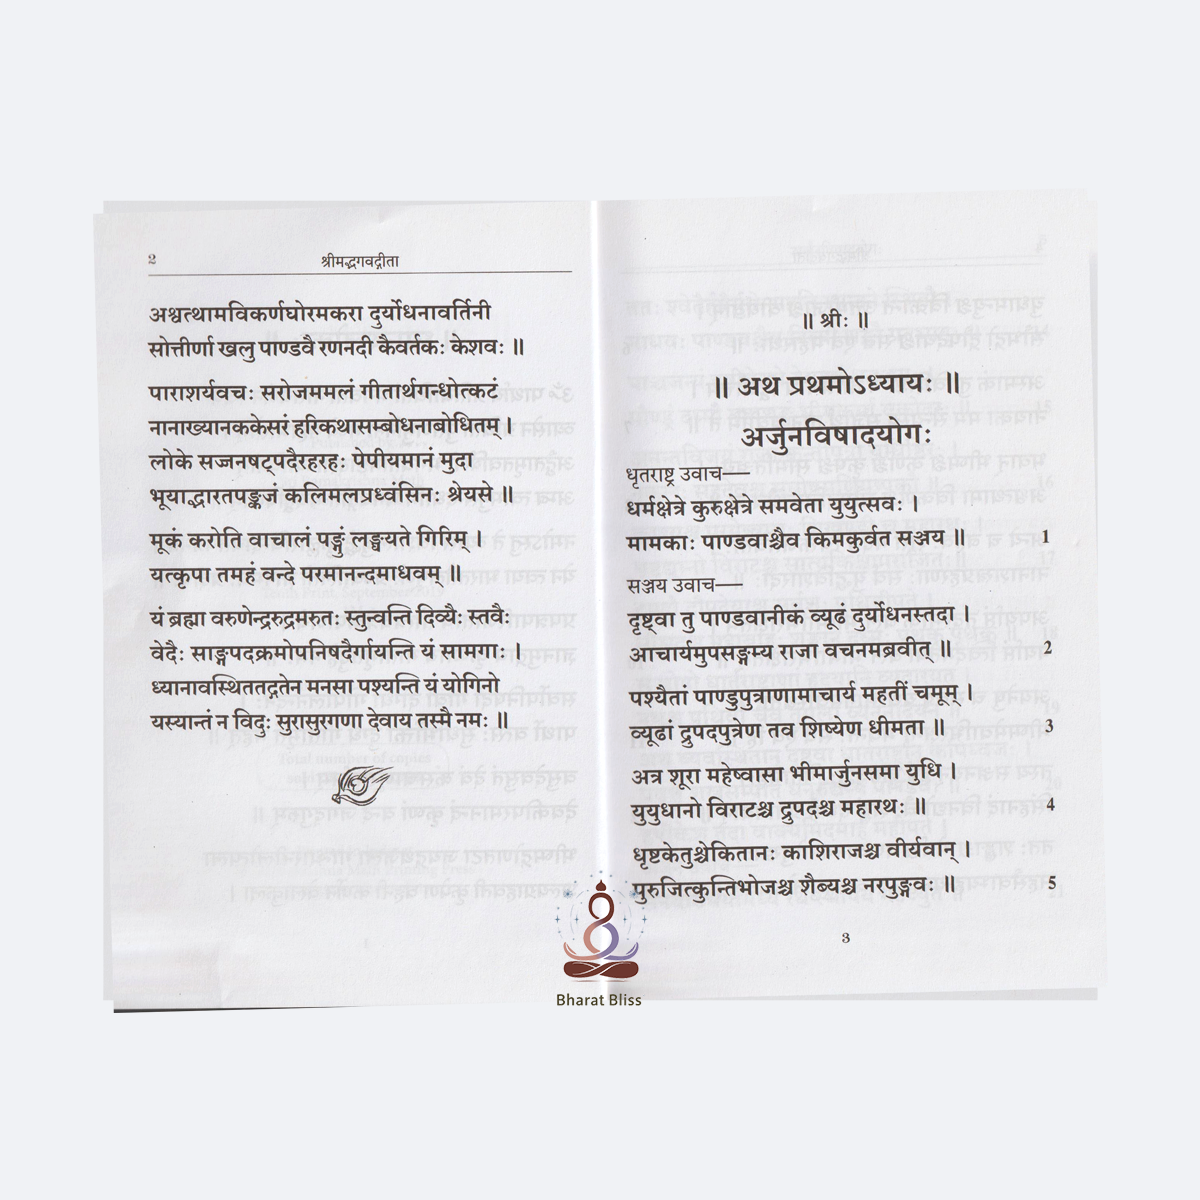 2
श्रीमद्भगवद्गीता
अश्वत्थामविकर्णघोरमकरा दुर्योधनावर्तिनी
सोत्तीर्णा खलु पाण्डवै रणनदी कैवर्तकः केशवः ॥
पाराशर्यवचः सरोजममलं गीतार्थगन्धोत्कटं
नानाख्यानककेसरं हरिकथासम्बोधनाबोधितम् ।
लोके सज्जनषट्पदैरहरहः पेपीयमानं मुदा
भूयाद्भारतपङ्कजं कलिमलप्रध्वंसिनः श्रेयसे ॥
मूकं करोति वाचालं पङ्गुं लङ्घयते गिरिम् ।
यत्कृपा तमहं वन्दे परमानन्दमाधवम् ॥
यं ब्रह्मा वरुणेन्द्ररुद्रमरुतः स्तुन्वन्ति दिव्यैः स्तवैः
वेदैः साङ्गपदक्रमोपनिषदैर्गायन्ति यं सामगाः ।
ध्यानावस्थिततद्गतेन मनसा पश्यन्ति यं योगिनो
यस्यान्तं न विदुः सुरासुरगणा देवाय तस्मै नमः ॥
॥ श्रीः ॥
॥ अथ प्रथमोऽध्यायः ॥
अर्जुनविषादयोगः
धृतराष्ट्र उवाच—
धर्मक्षेत्रे कुरुक्षेत्रे समवेता युयुत्सवः ।
मामकाः पाण्डवाश्चैव किमकुर्वत सञ्जय ॥ 1
सञ्जय उवाच—
दृष्ट्वा तु पाण्डवानीकं व्यूढं दुर्योधनस्तदा ।
आचार्यमुपसङ्गम्य राजा वचनमब्रवीत् ॥ 2
पश्यैतां पाण्डुपुत्राणामाचार्य महतीं चमूम् ।
व्यूढां द्रुपदपुत्रेण तव शिष्येण धीमता ॥ 3
अत्र शूरा महेष्वासा भीमार्जुनसमा युधि ।
युयुधानो विराटश्च द्रुपदश्च महारथः ॥ 4
धृष्टकेतुश्चेकितानः काशिराजश्च वीर्यवान् ।
पुरुजित्कुन्तिभोजश्च शैब्यश्च नरपुङ्गवः ॥ 5
3
Bharat Bliss